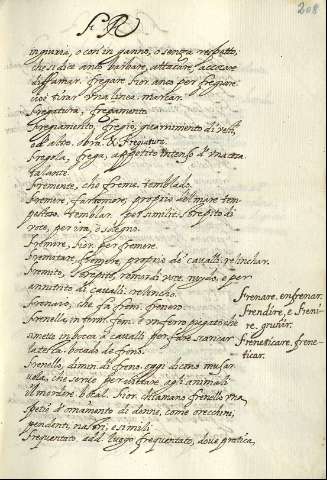 F R
208
ingiuria, o con inganno, o senza rispetto:
che si dice anco barbare, attaccare, accoccare
diffamar. fregare fior. anco per fregiare:
cioè tirar vna linea. mortar.
Fregatura, fregamento.
Fregiamento, fregio, guarnimento di vesti,
od altro. obra. & Fregiatura.
Fregola, frega, appetito intenso d'vna cosa
talante.
Fremente, che freme. temblado.
Fremere, proprio del mare tem-
pestoso. temblar. per simil. strepito di
voce, per ira, o sdegno.
Fremire, fior. per fremere.
Fremitare, fremere, proprio de' cavalli. relinchar.
Fremito, strepito, romor di voce, e per
annitrito di cavalli. relincho.
Frenaro, che fa freni. frenero.
Frenella, in term. fem. è un ferro piegato che
si mette in bocca a' cavalli per fare scaricar
la testa. bocado de freno.
Frenello, dimin. di freno. oggi dicono musar
uola, che serve per vietare agli animali
il mordere. bozal. fior. chiamano frenello vna
spetie d'ornamento di donne, come orecchini,
pendenti, nastri, e simili.
Frequentato. add. luogo frequentato, dove pratica,
Frenare. enfrenar.
Frendire, e Freni-
re. gruñir.
Freneticare, frene-
ticar.